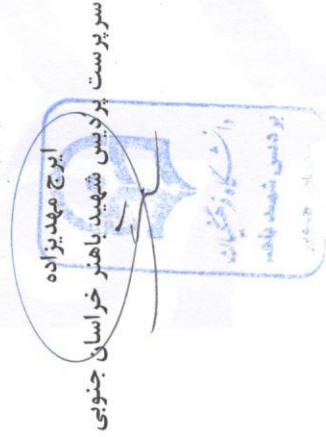 ایرج مهدیزاده
سرپرست پردیس شهید باهنر خراسان جنوبی
دانشگاه فرهنگیان
پردیس شهید باهنر